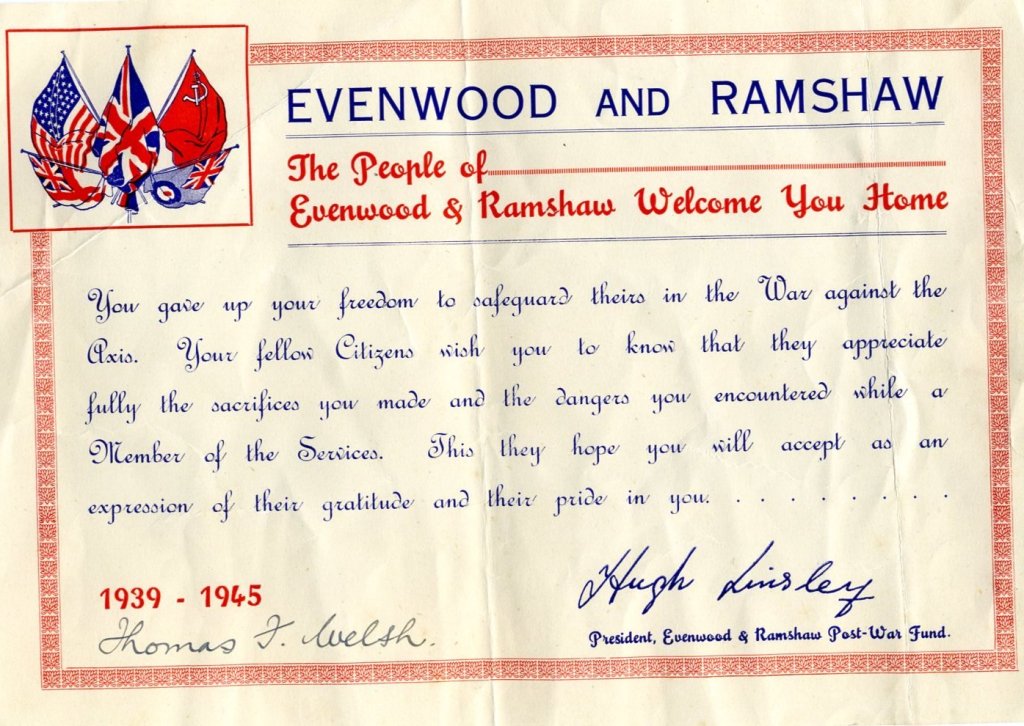 EVENWOOD AND RAMSHAW
The People of
Evenwood & Ramshaw Welcome You Home
You gave up your freedom to safeguard theirs in the War against the
Axis. Your fellow Citizens wish you to know that they appreciate
fully the sacrifices you made and the dangers you encountered while a
Member of the Services. This they hope you will accept as an
expression of their gratitude and their pride in you. . . . . . . . .
Hugh Linsley
1939 - 1945
Thomas F. Welsh.
President, Evenwood & Ramshaw Post-War Fund.